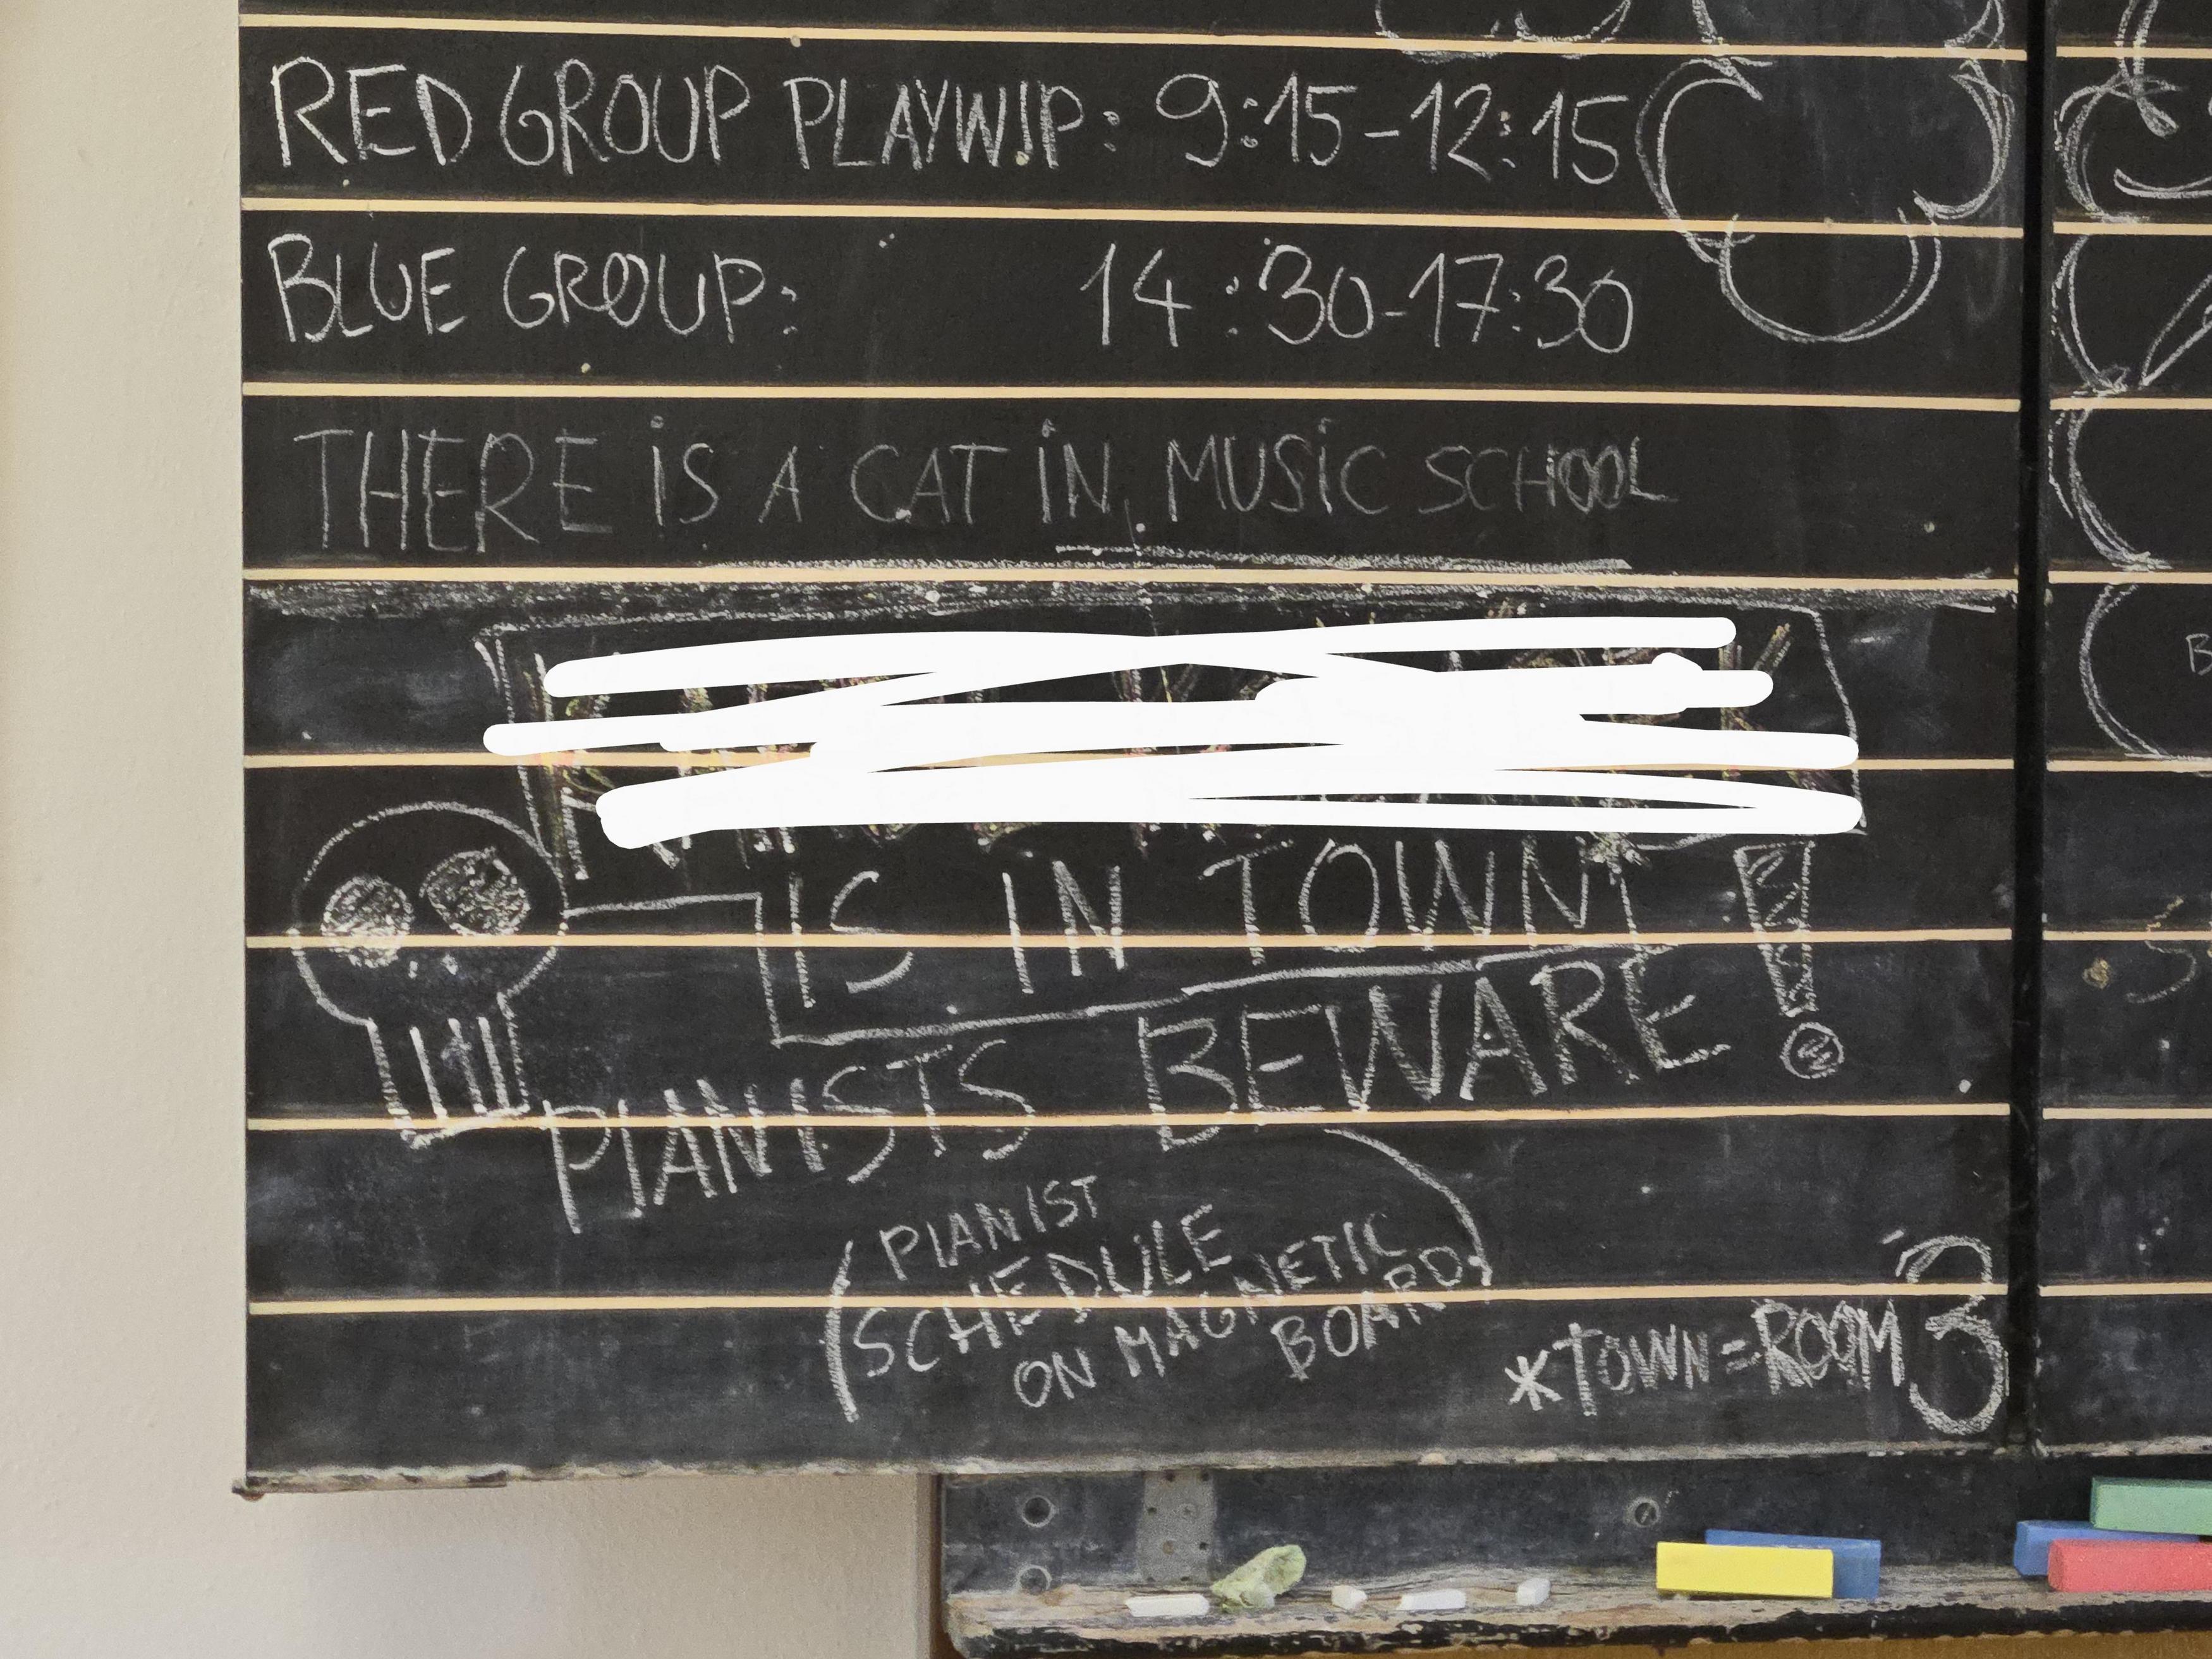 RED GROUP PLAYWIP: 9:15-12:15
BLUE GROUP: 14:30-17:30
THERE iS A CAT iN MUSiC SCHOOL
IS IN TOWN*
PIANISTS BEWARE!
(PIANIST
SCHEDULE
ON MAGNETIC
BOARD)
*TOWN=ROOM 3